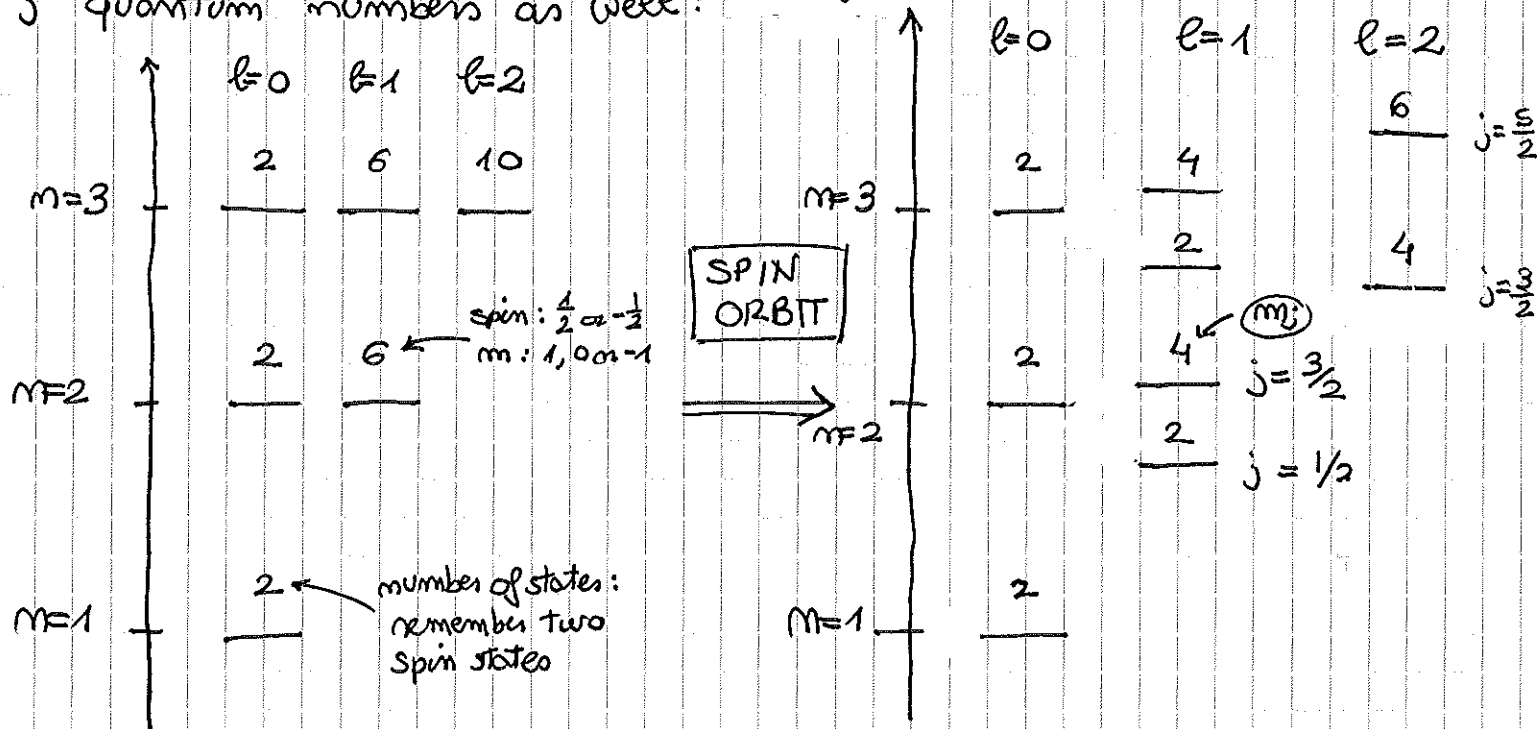 j quantum numbers as well:
l=0 l=1 l=2
2 6 10
n=3
spin: 1/2 or -1/2
m: 1, 0 or -1
2 6
n=2
2
number of states:
remember two
spin states
n=1
SPIN
ORBIT
l=0 l=1 l=2
6
j=5/2
2 4
n=3
2 4
j=3/2
mj
2 4
j=3/2
n=2
2
j=1/2
2
n=1